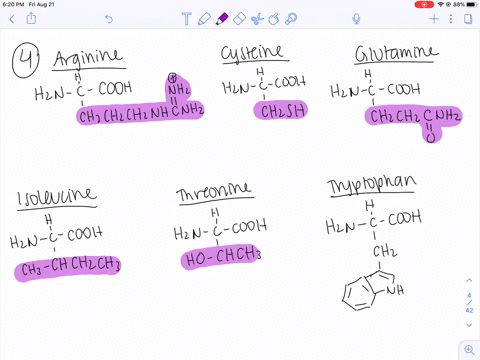 6:20 PM Fri Aug 21
88%
4
Arginine
H
H2N-C-COOH
⊕
NH2
CH2CH2CH2NHCNH2
Cysteine
H
H2N-C-COOH
CH2SH
Glutamine
H
H2N-C-COOH
CH2CH2CNH2
O
Isoleucine
H
H2N-C-COOH
CH3-CHCH2CH3
Threonine
H
H2N-C-COOH
HO-CHCH3
Tryptophan
H
H2N-C-COOH
CH2
NH
4
/
42